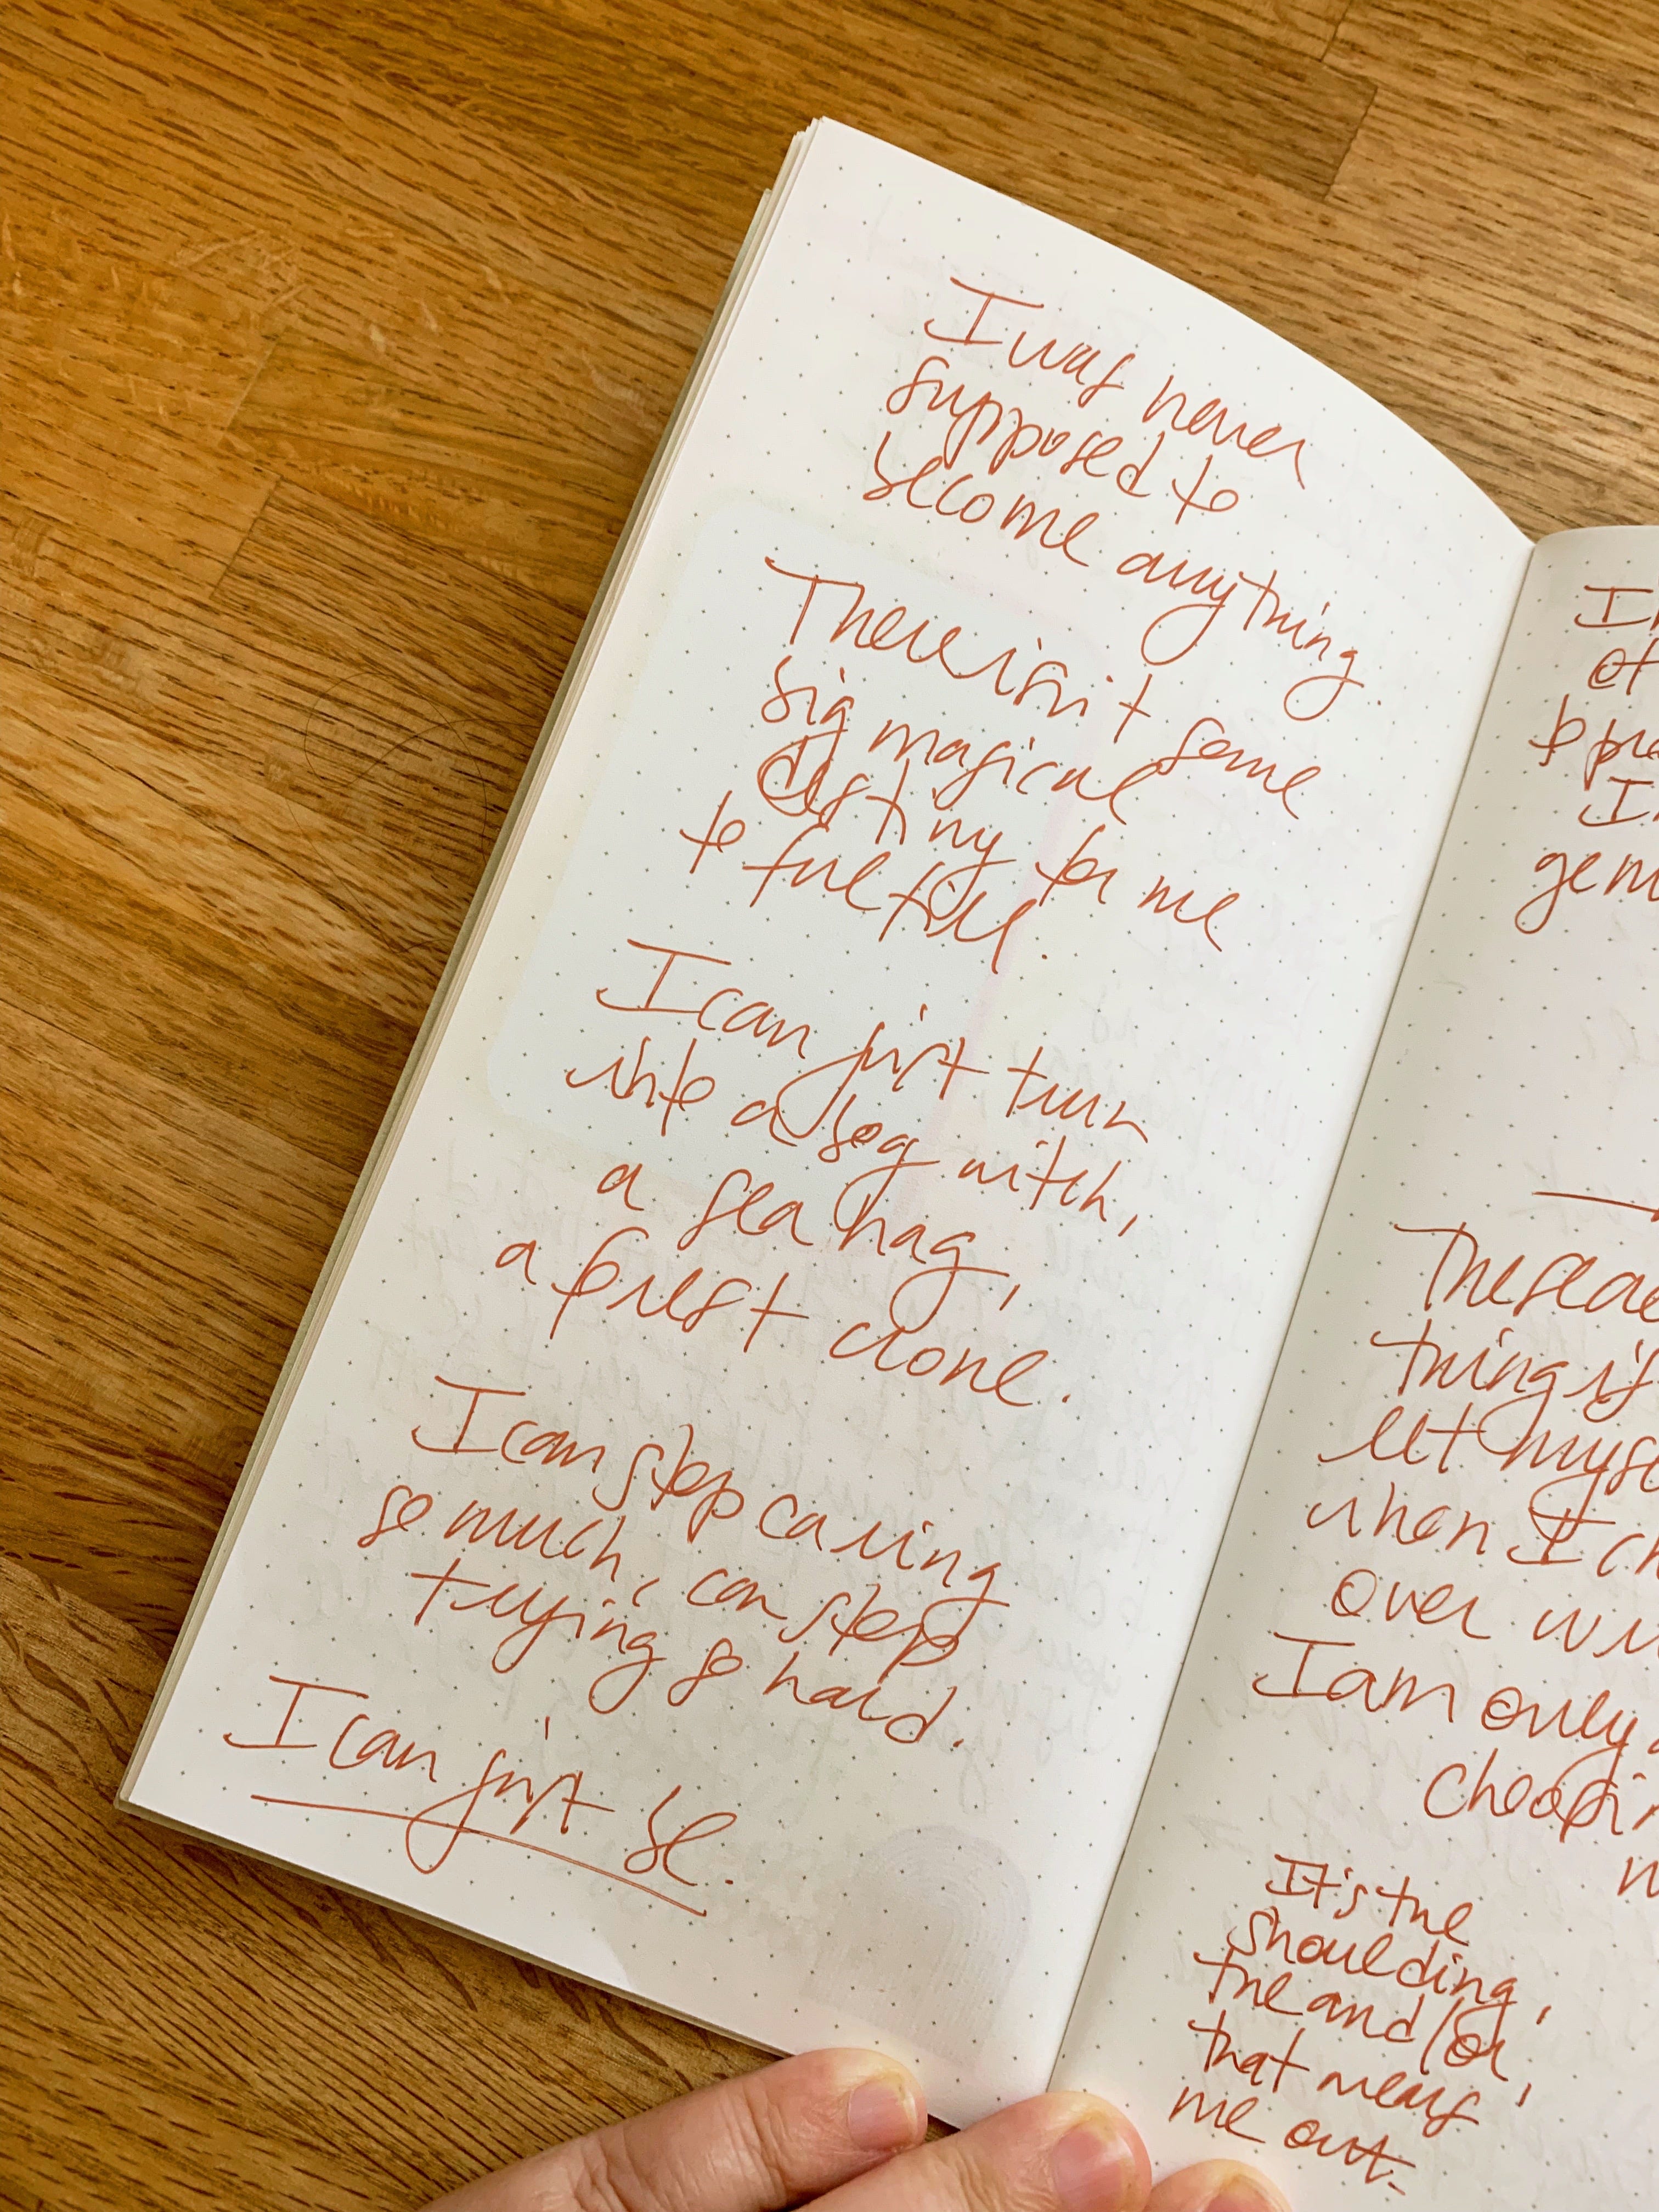 I was never
supposed to
become anything.
There isn't some
big magical
destiny for me
to fulfill.
I can just turn
into a bog witch,
a sea hag,
a forest clone.
I can stop caring
so much, can stop
trying so hard.
I can just be.
of
I
The
thing is
let
when I
over
I am only
It's the
shoulding,
the and/or,
that wears
me out.